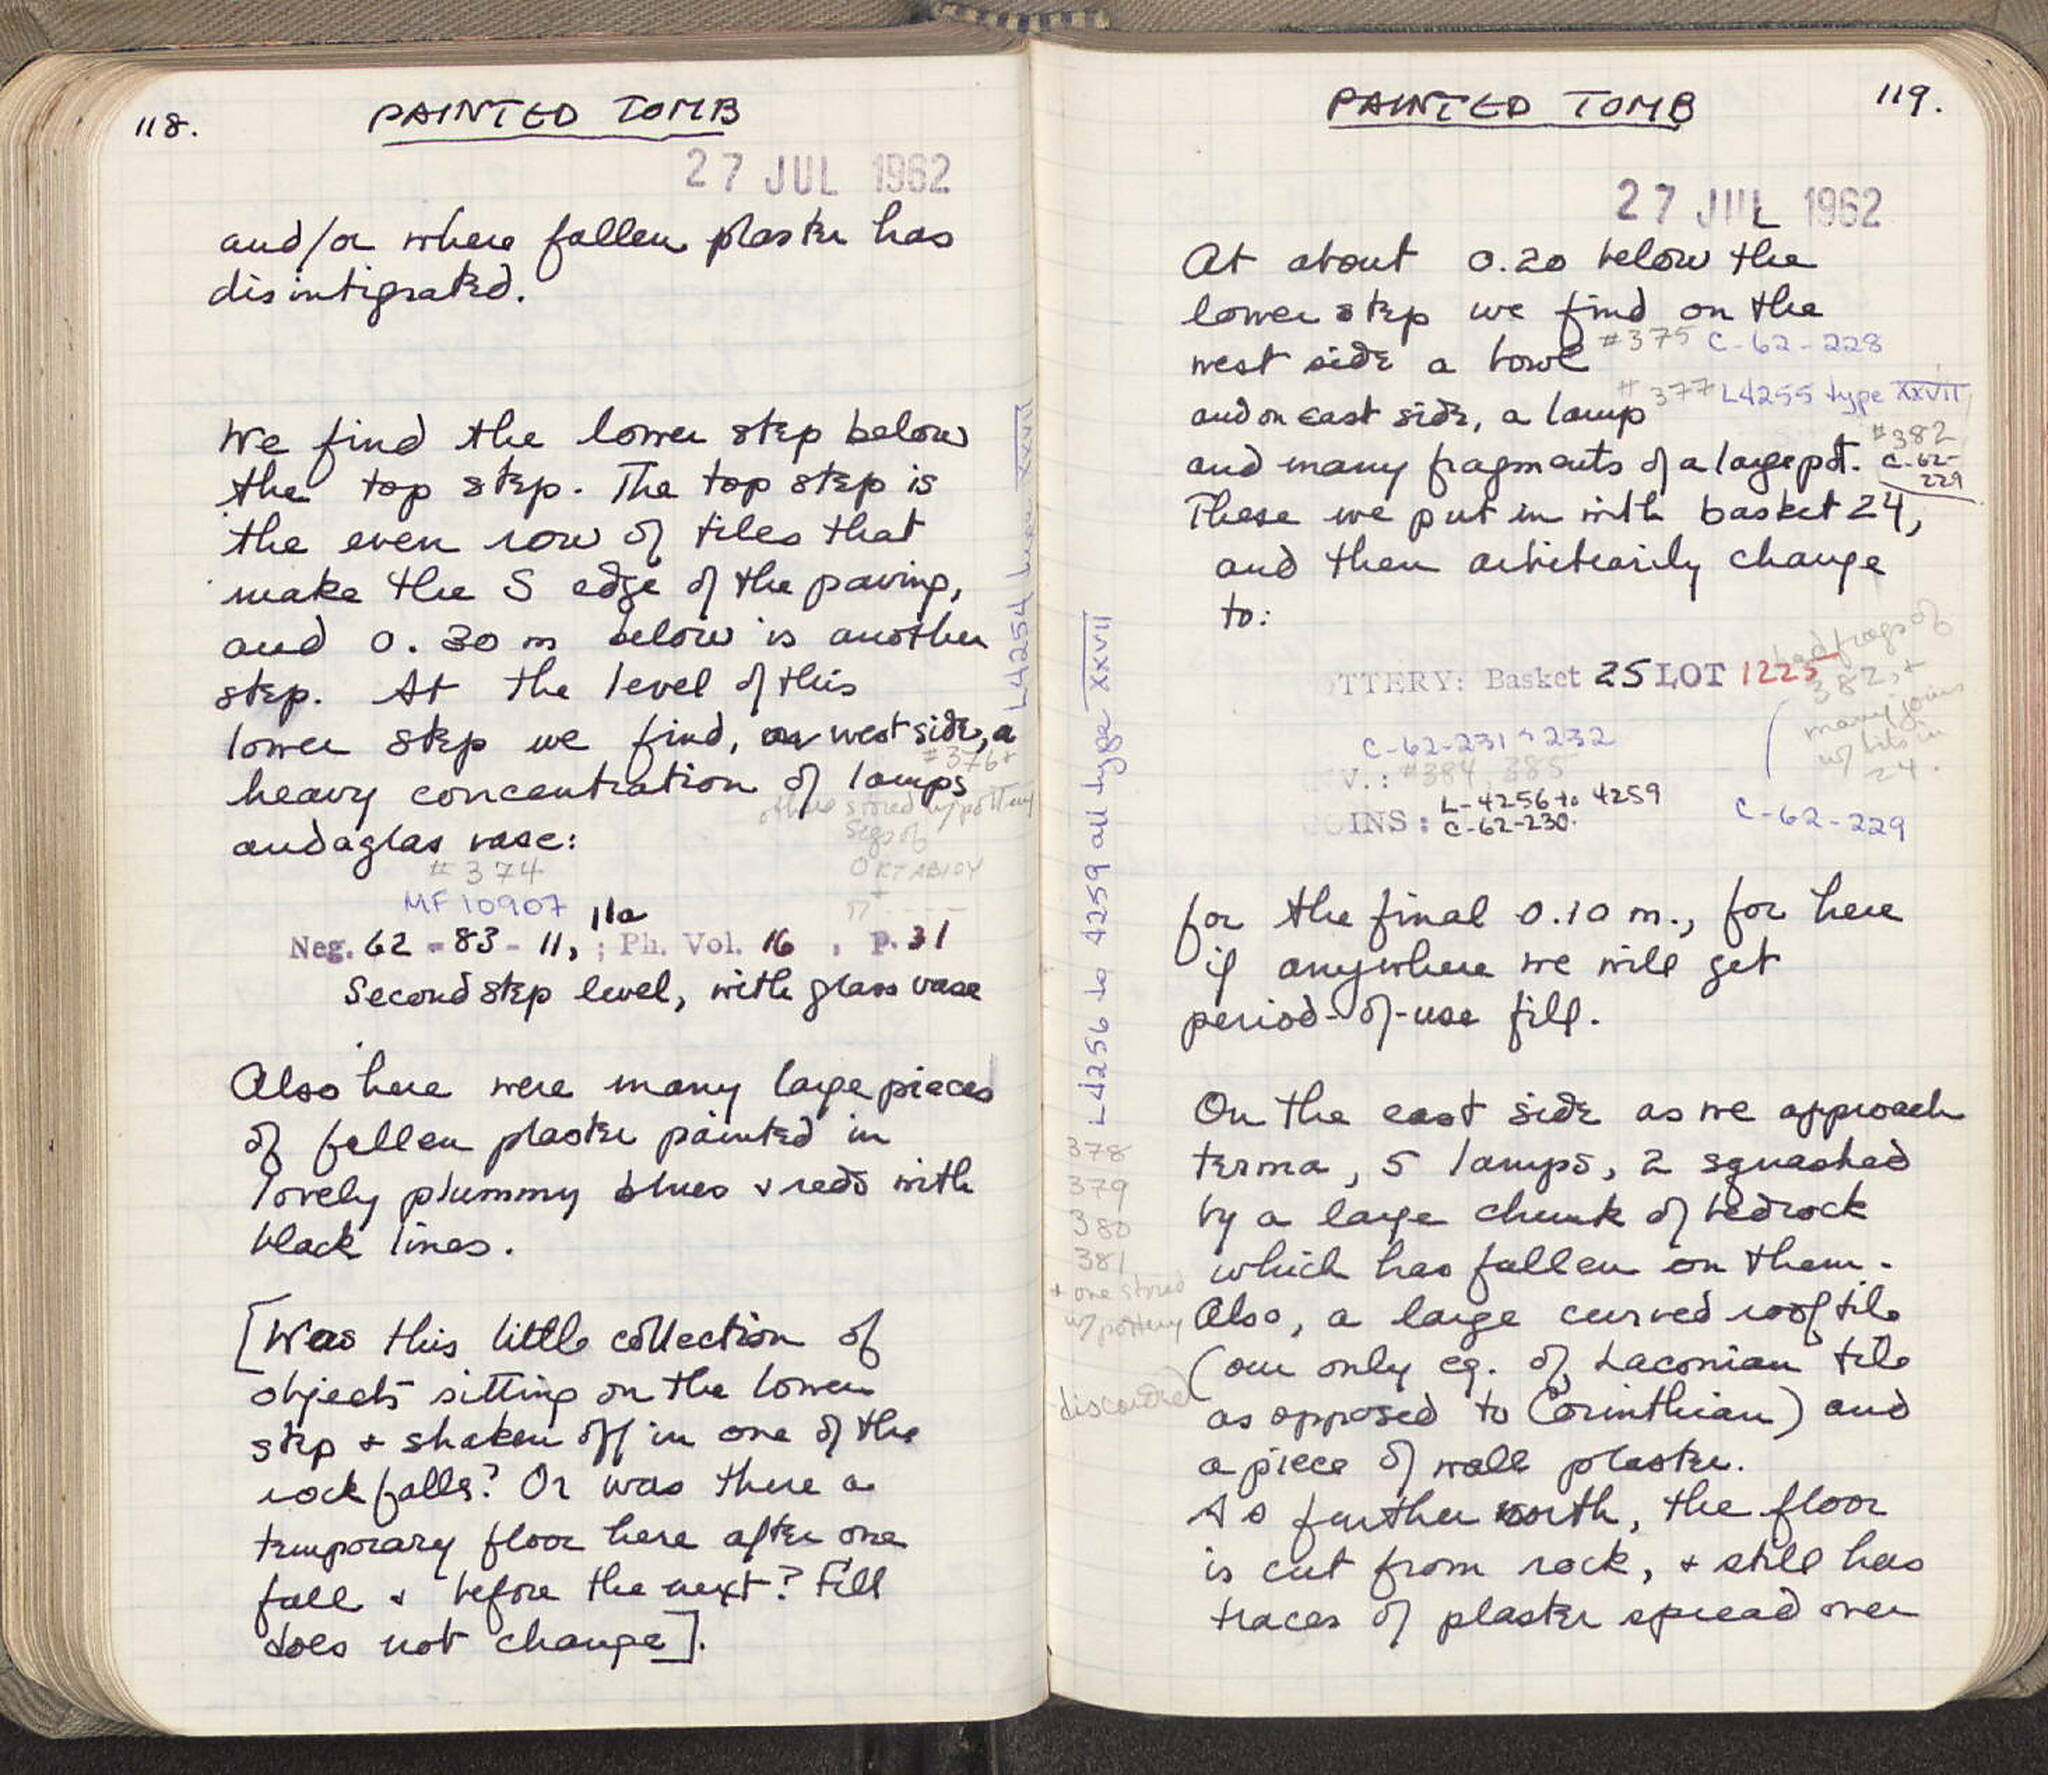 118.
PAINTED TOMB
27 JUL 1962
and/or where fallen plaster has
disintigrated.
We find the lower step below
the top step. The top step is
the even row of tiles that
make the S edge of the paving,
and 0.30 m below is another
step. At the level of this
lower step we find, on west side, a
#376 +
heavy concentration of lamps
others stored w/ pottery
L4254 type XXVII
and a glas vase:
Segs of
#374
OKTABIOY
+
MF 10907
Neg. 62 - 83 - 11, 11a ; Ph. Vol. 16 , p. 31
Second step level, with glass vase
Also here were many large pieces
of fallen plaster painted in
lovely plummy blues + reds with
black lines.
[Was this little collection of
objects sitting on the lower
step + shaken off in one of the
rock falls? Or was there a
temporary floor here after one
fall + before the next? Fill
does not change].
119.
PAINTED TOMB
27 JUL 1962
At about 0.20 below the
lower step we find on the
west side a bowl #375 C-62-228
and on east side, a lamp #377 L4255 type XXVII
and many fragments of a large pot. #382 C-62-229
These we put in with basket 24,
and then arbitrarily change
to:
OTTERY: Basket 25 LOT 1225
had frags of
382, +
many joins
w/ bits in
24.
C-62-231 + 232
V.: #384, 385
COINS: L-4256 to 4259
C-62-230.
C-62-229
for the final 0.10 m., for here
if anywhere we will get
period-of-use fill.
L4256 to 4259 all type XXVII
378
379
380
381
+ one stored
w/ pottery
On the east side as we approach
terma, 5 lamps, 2 squashed
by a large chunk of bedrock
which has fallen on them.
Also, a large curved roof tile
(our only eg. of Laconian tile
discarded
as opposed to Corinthian) and
a piece of wall plaster.
As further north, the floor
is cut from rock, + still has
traces of plaster spread over